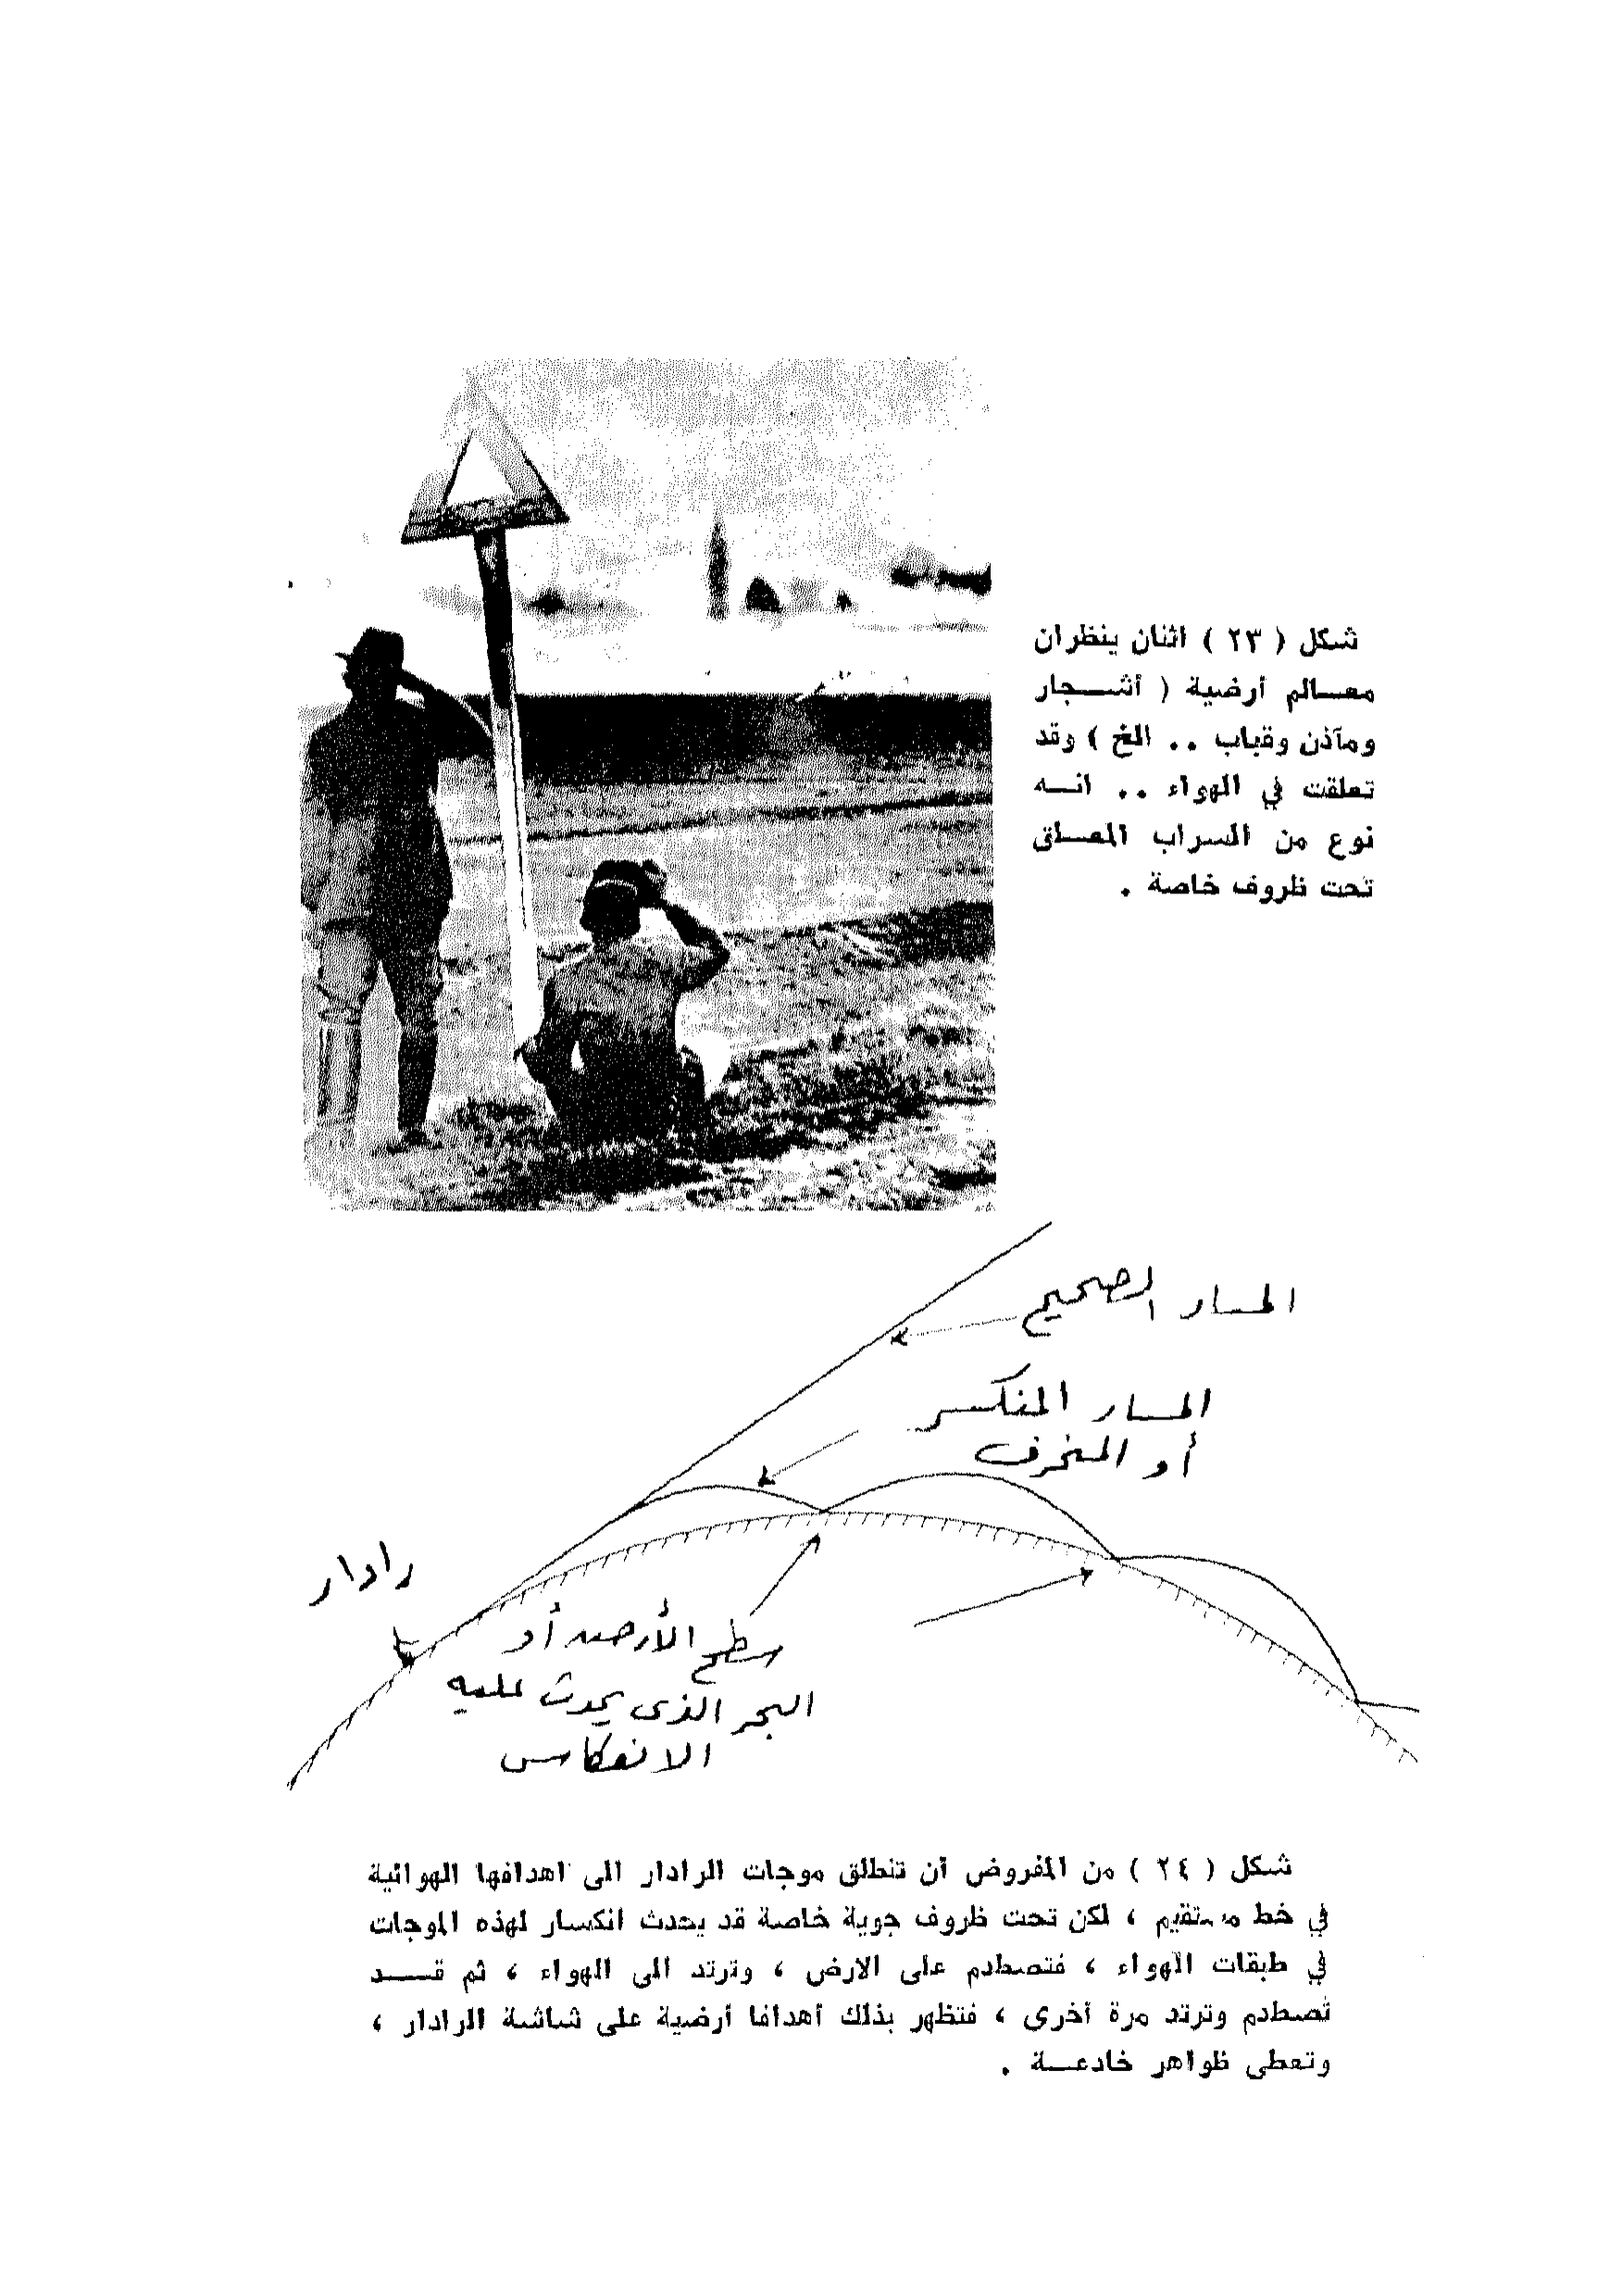 شكل ( ٢٣ ) اثنان ينظران
معـــالم أرضية ( أشـــجار
ومآذن وقباب .. الخ ) وقد
تعلقت في الهواء .. انـــه
نوع من السراب المعــلق
تحت ظروف خاصة .
المسار الصحيح
المسار المنكسر
أو المنحرف
رادار
سطح الأرض أو
البحر الذى يحدث عليه
الانعكاس
شكل ( ٢٤ ) من المفروض أن تنطلق موجات الرادار الى اهدافها الهوائية
في خط مستقيم ، لكن تحت ظروف جوية خاصة قد يحدث انكسار لهذه الموجات
في طبقات الهواء ، فتصطدم على الارض ، وترتد الى الهواء ، ثم قـــد
تصطدم وترتد مرة أخرى ، فتظهر بذلك أهدافا أرضية على شاشة الرادار ،
وتعطى ظواهر خادعـــة .